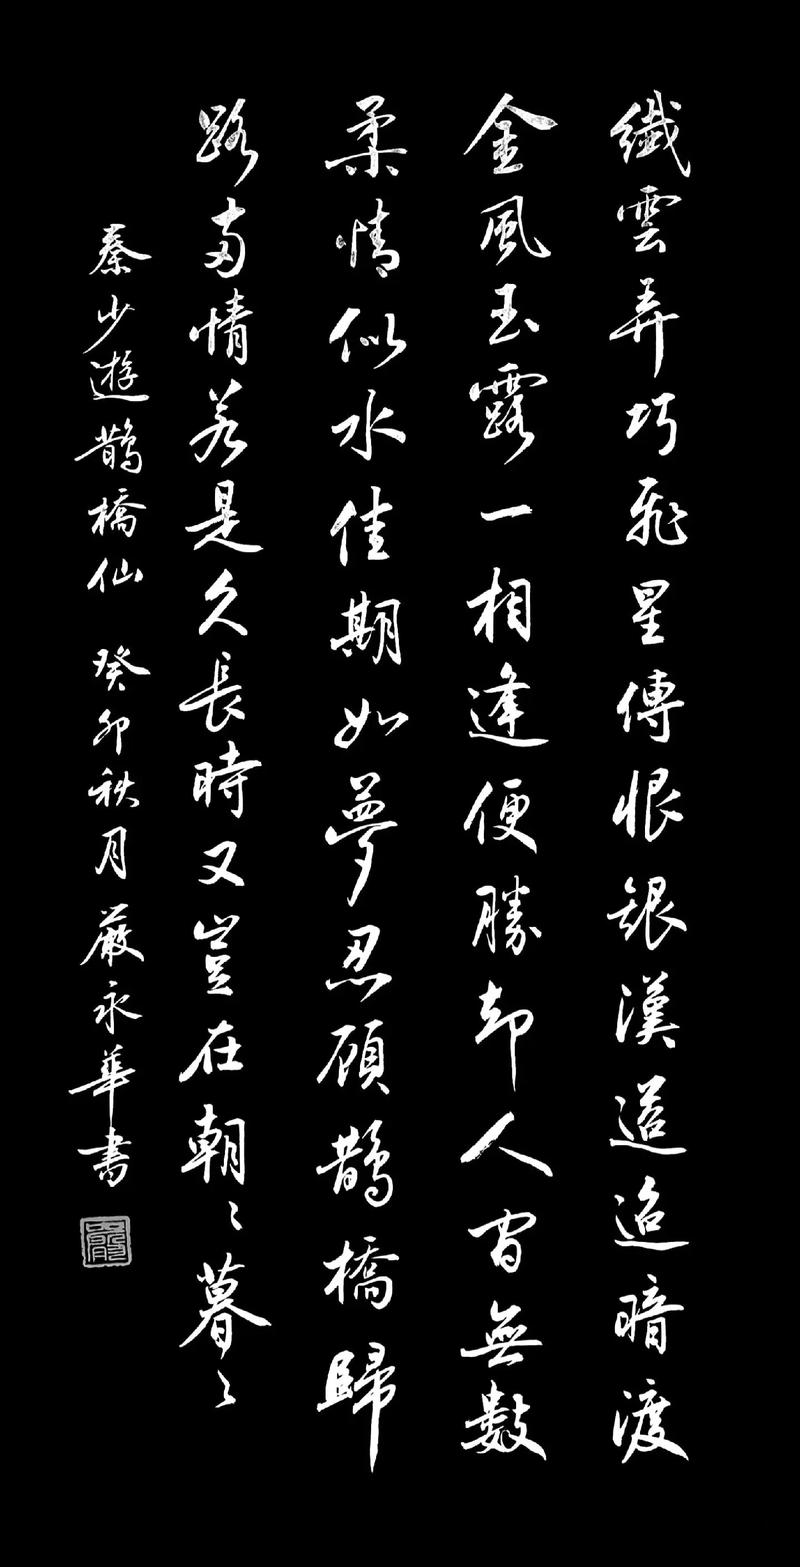 纖雲弄巧飛星傳恨銀漢迢迢暗渡
金風玉露一相逢便勝却人間無數
柔情似水佳期如夢忍顧鵲橋歸
路兩情若是久長時又豈在朝〻暮〻
秦少遊鵲橋仙 癸卯秋月嚴永華書